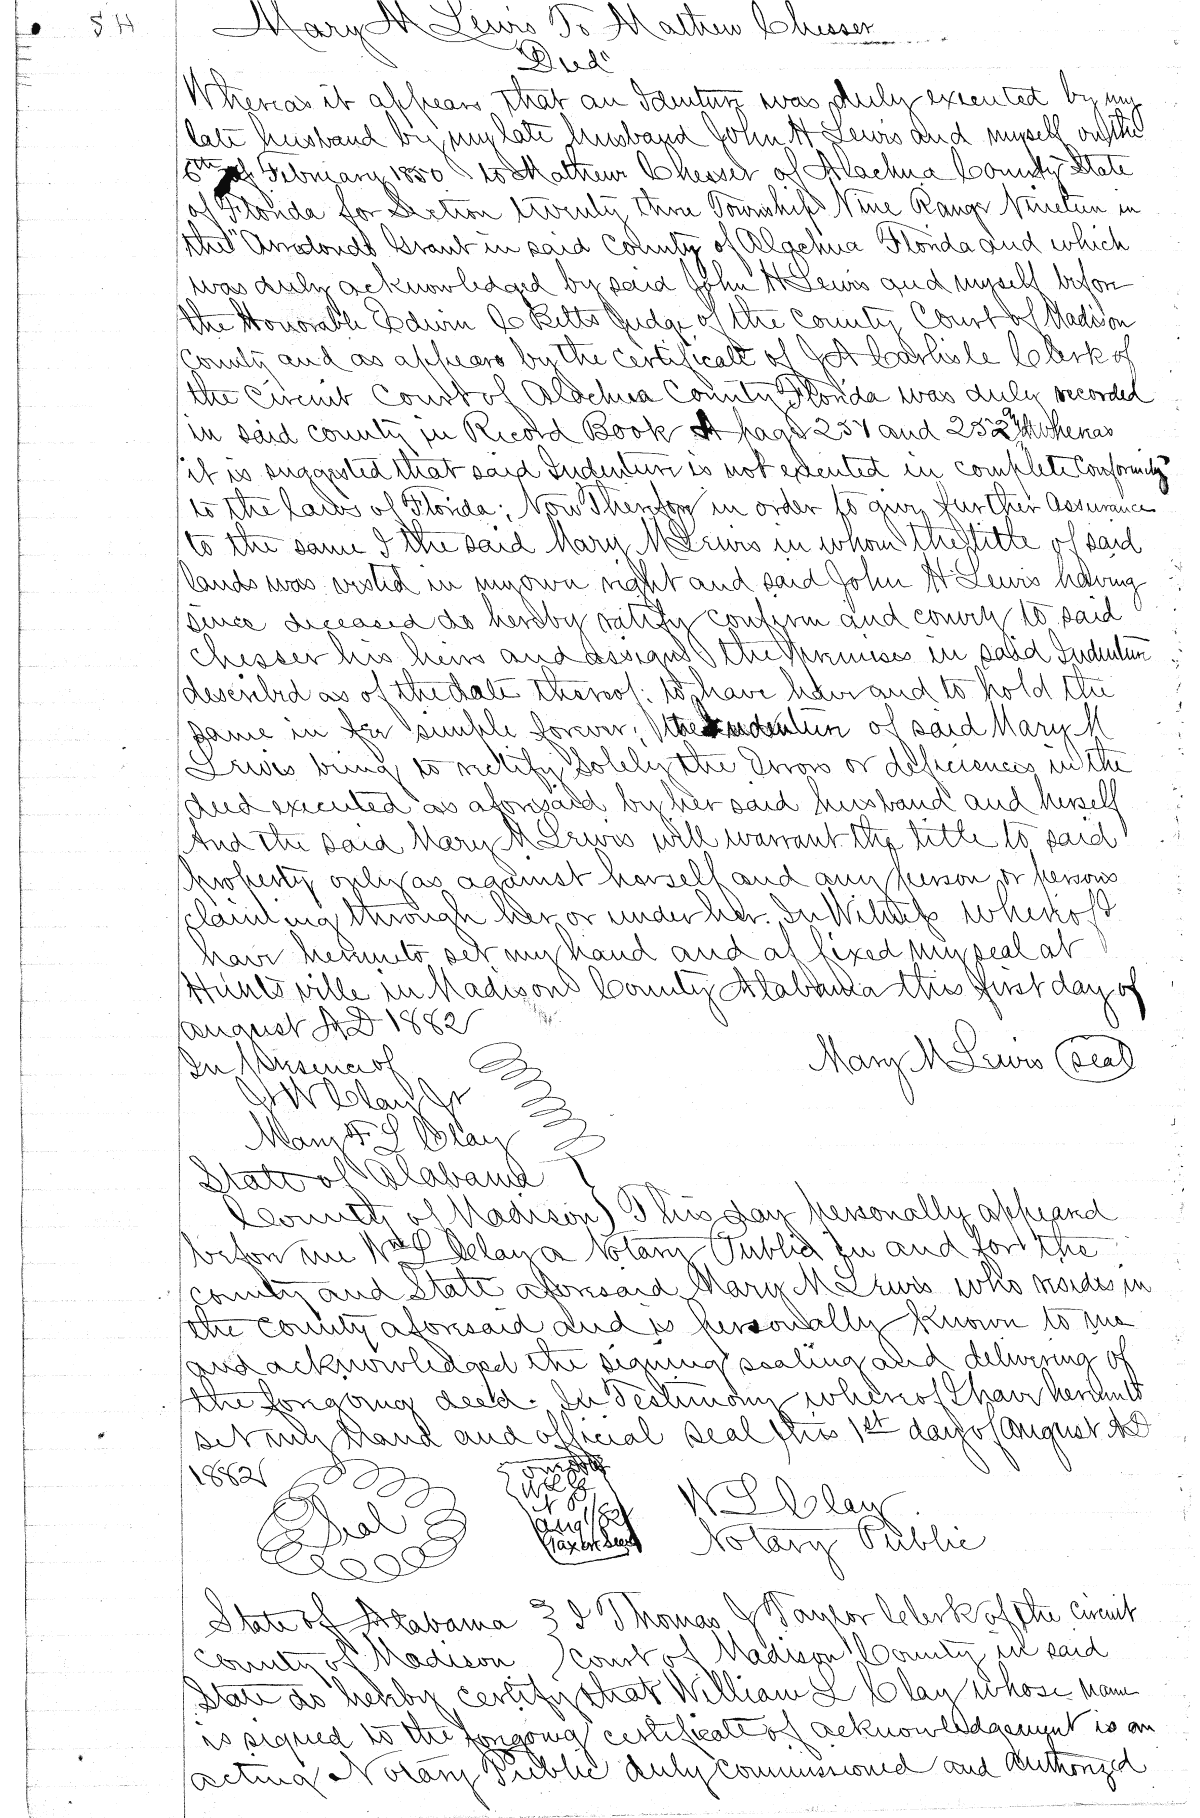 54
Mary M Lewis To Mathew Chesser
"Deed"
Whereas it appears that an Identure was duly executed by my
late husband by my late husband John H Lewis and myself on the
6th of February 1850 to Mathew Chesser of Alachua County State
of Florida for Section twenty three Township Nine Range Nineteen in
the "Arredondo Grant in said County of Alachua Florida and which
was duly acknowledged by said John H Lewis and myself before
the Honorable Edwin C Betts Judge of the County Court of Madison
County and as appears by the certificate of J A Carlisle Clerk of
the Circuit Court of Alachua County Florida was duly recorded
in said county in Record Book A page 251 and 252 And Whereas
it is suggested that said Indenture is not executed in complete Conformity
to the laws of Florida; Now Therefore in order to give further Assurance
to the same I the said Mary M Lewis in whom the title of said
lands was vested in my own right and said John H Lewis having
since deceased do hereby ratify confirm and convey to said
Chesser his heirs and assigns the premises in said Indenture
described as of the date thereof: to have and to hold the
same in fee simple forever; the Indenture of said Mary M
Lewis being to rectify solely the Errors or deficiences in the
deed executed as aforesaid by her said husband and herself
And the said Mary M Lewis will warrant the title to said
property only as against herself and any person or persons
claiming through her or under her. In Witness whereof I
have hereunto set my hand and affixed my seal at
Huntsville in Madison County Alabama this first day of
august AD 1882
In Presence of
Mary M Lewis (seal)
J W Clay Jr
Mary F L Clay
State of Alabama
County of Madison) This day personally appeared
before me Wm L Clay a Notary Public in and for the
county and State aforesaid Mary M Lewis who resides in
the county aforesaid and is personally known to me
and acknowledged the signing sealing and delivering of
the forgoing deed. In Testimony whereof I have hereunto
set my hand and official seal this 1st day of August AD
1882
Seal
Aug 1/82
Tax on deed
W L Clay
Notary Public
State of Alabama } I Thomas J Taylor Clerk of the Circuit
County of Madison } Court of Madison County in said
State do hereby certify that William L Clay whose name
is signed to the forgoing certificate of acknowledgement is an
acting Notary Public duly commissioned and Authorized